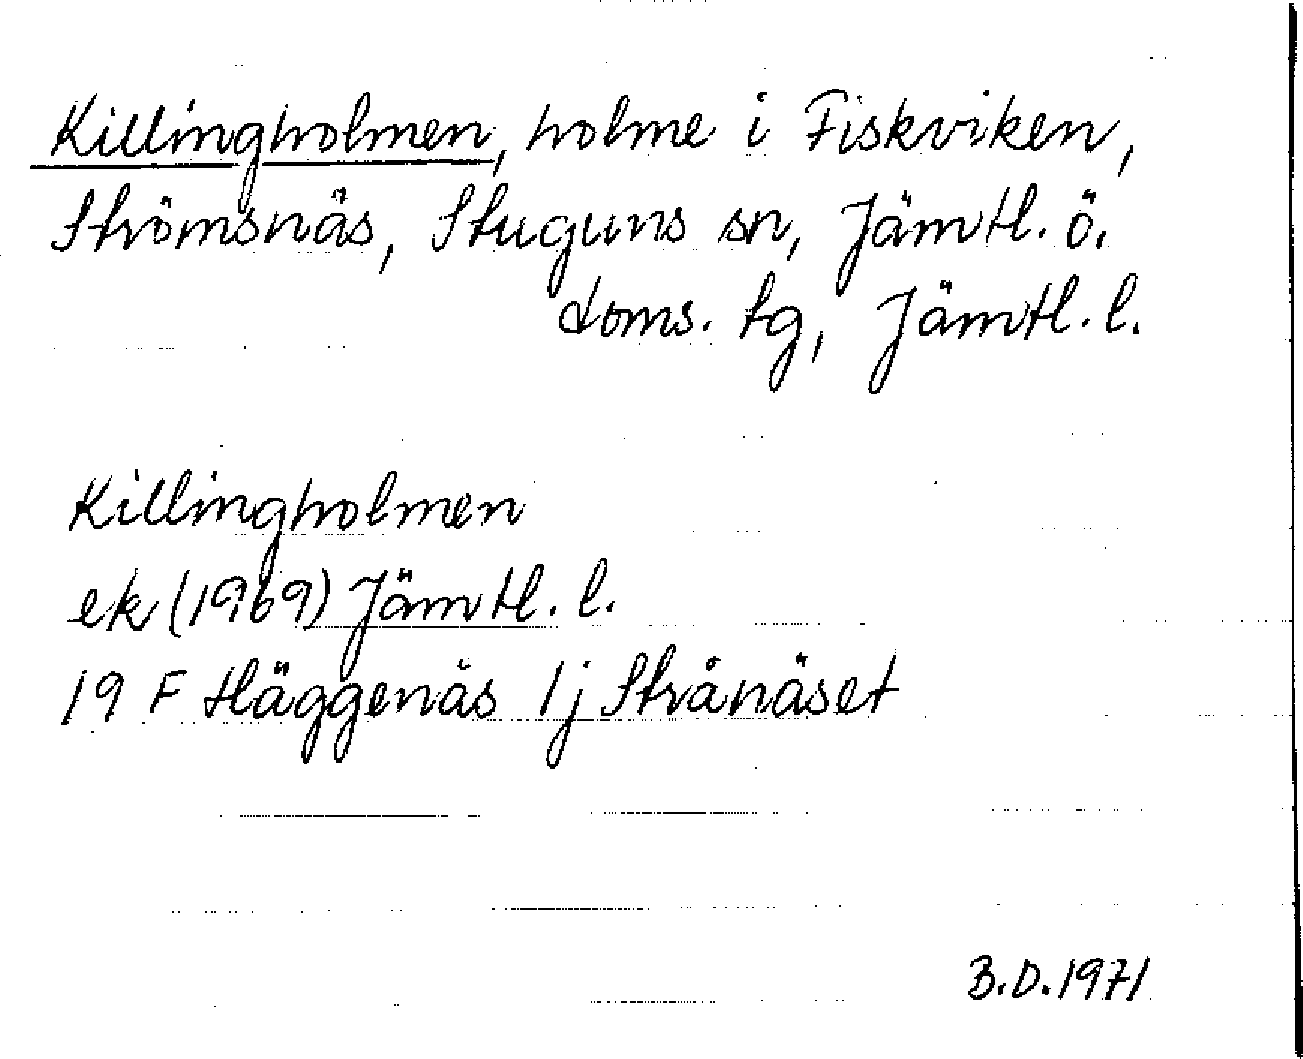 Killingholmen, holme i Fiskviken,
Strömsnäs, Stuguns sn, Jämtl. ö.
doms. tg, Jämtl. l.
Killingholmen
ek (1969) Jämtl. l.
19 F Häggenås 1j Strånäset
B.D. 1971